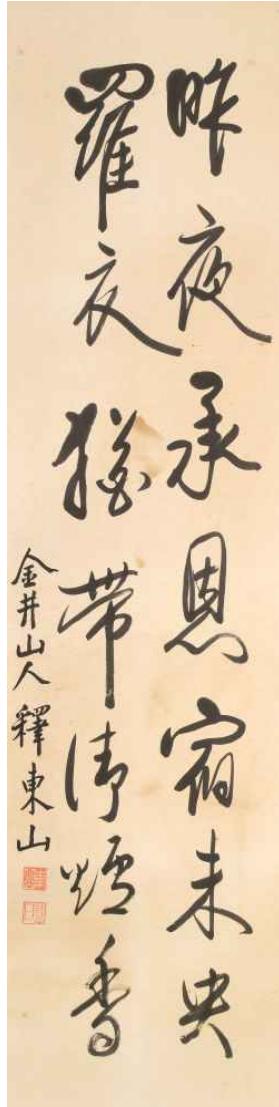 昨夜承恩宿未央
羅衣猶帶御爐香
金井山人釋東山